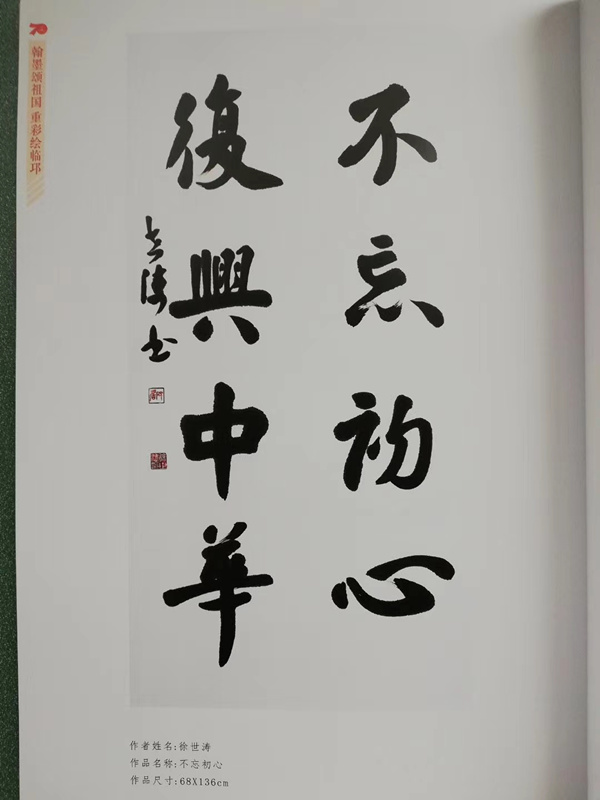 翰墨颂祖国 重彩绘临邛
不忘初心
復興中華
世涛书
作者姓名:徐世涛
作品名称:不忘初心
作品尺寸:68X136cm